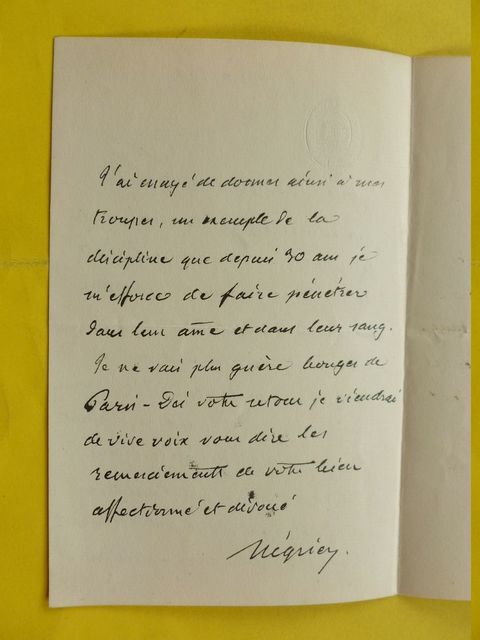 J'ai essayé de donner ainsi à mes
troupes, un exemple de la
discipline que depuis 30 ans je
m'efforce de faire pénétrer
dans leur âme et dans leur sang.
Je ne vais plus guère bouger de
Paris - Dès votre retour je viendrai
de vive voix vous dire les
remerciements de votre bien
affectionné et dévoué
Négrier.